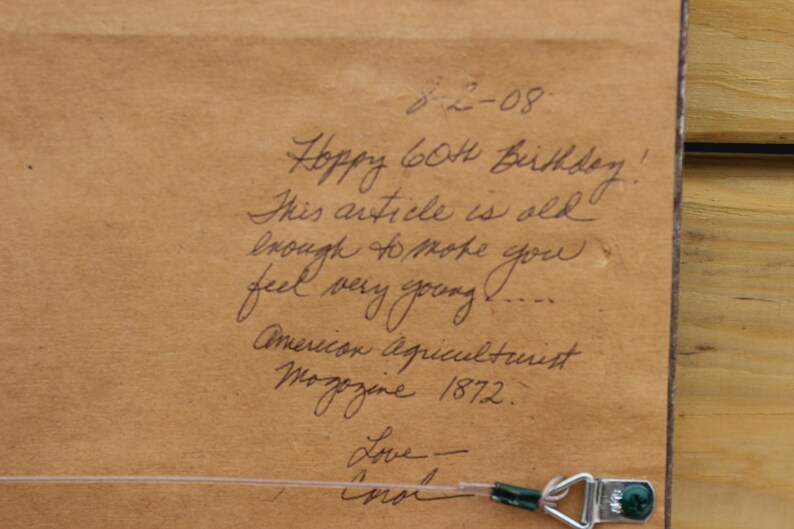 8-2-08
Happy 60th Birthday!
This article is old
enough to make you
feel very young.....
American Agriculturist
Magazine 1872.
Love—
Carol